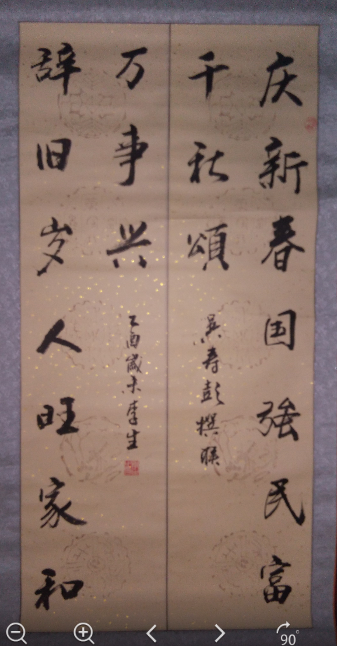 庆新春国强民富
千秋頌
吴寿彭撰联
万事兴
辞旧岁人旺家和
乙酉歲末李生
90°